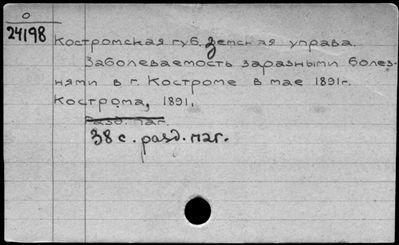 0
24198
Костромская губ. Земская управа.
Заболеваемость заразными болез-
нями в г. Костроме в мае 1891г.
Кострома, 1891.
разд. паг.
38 с. разд. паг.